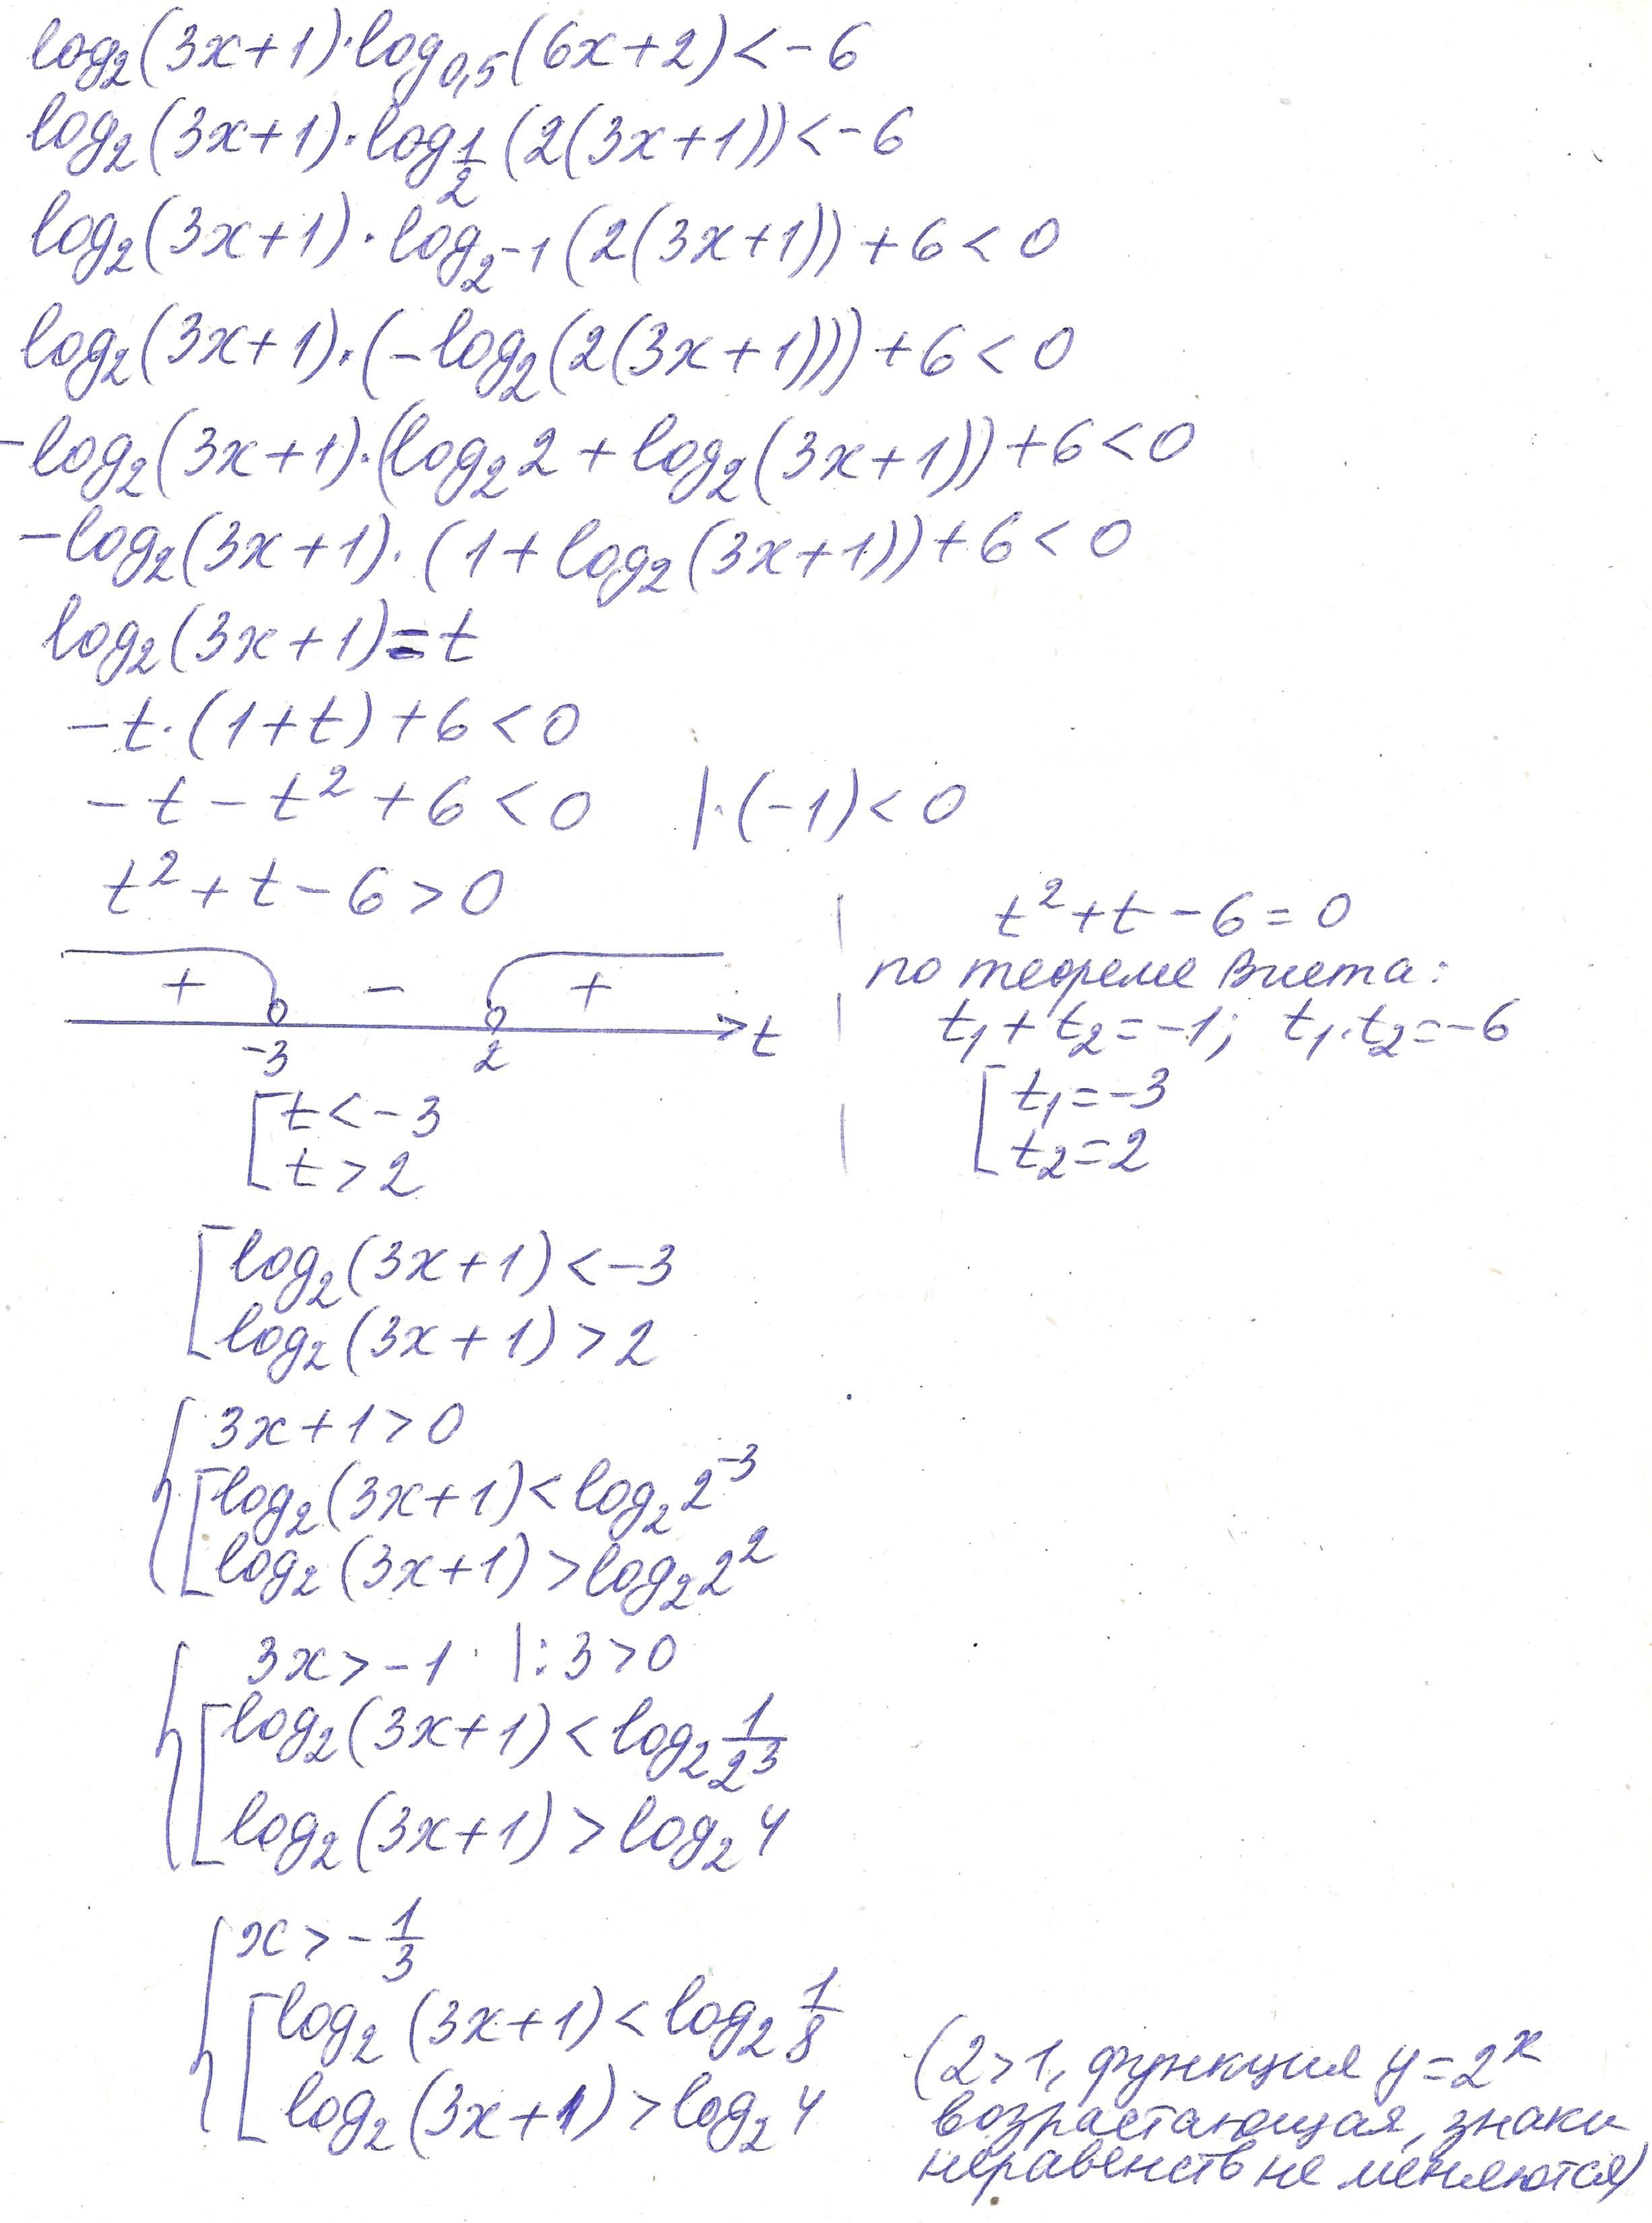 log₂(3x+1)·log₀,₅(6x+2)<-6
log₂(3x+1)·log_{1/2}(2(3x+1))<-6
log₂(3x+1)·log_{2⁻¹}(2(3x+1))+6<0
log₂(3x+1)·(-log₂(2(3x+1)))+6<0
-log₂(3x+1)·(log₂2+log₂(3x+1))+6<0
-log₂(3x+1)·(1+log₂(3x+1))+6<0
log₂(3x+1)=t
-t·(1+t)+6<0
-t-t²+6<0 |·(-1)<0
t²+t-6>0
+ - +
-3 2 t
t<-3
t>2
t²+t-6=0
по теореме Виета:
t₁+t₂=-1; t₁·t₂=-6
t₁=-3
t₂=2
log₂(3x+1)<-3
log₂(3x+1)>2
3x+1>0
log₂(3x+1)<log₂2⁻³
log₂(3x+1)>log₂2²
3x>-1 |:3>0
log₂(3x+1)<log₂ 1/2³
log₂(3x+1)>log₂4
x>-1/3
log₂(3x+1)<log₂ 1/8
log₂(3x+1)>log₂4
(2>1, функция y=2ˣ
возрастающая, знаки
неравенств не меняются)